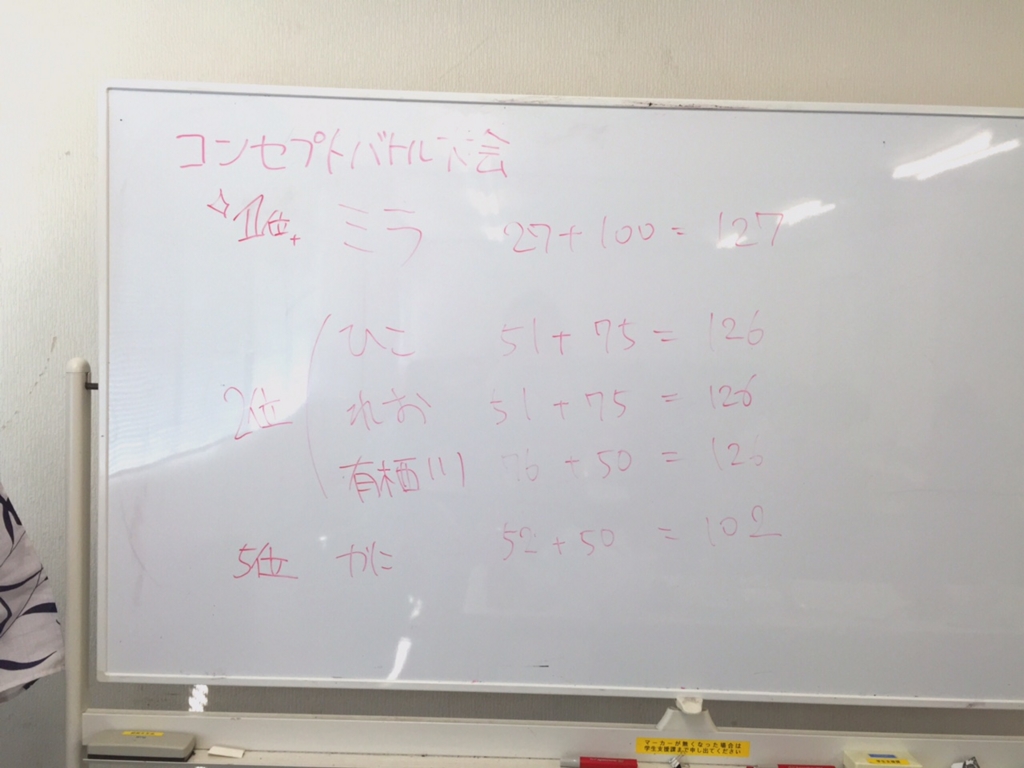 コンセプトバトル大会
1位 ミラ 27+100=127
ひこ 51+75=126
2位 れお 51+75=126
有栖川 76+50=126
5位 かに 52+50=102
マーカーが無くなった場合は
学生支援課まで申し出てください